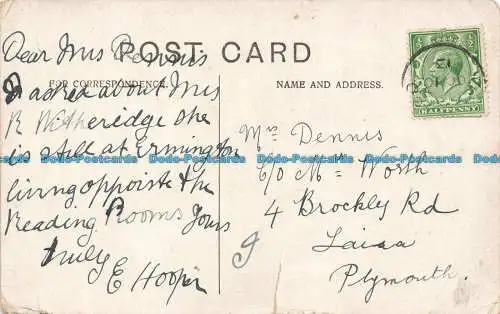 POST CARD
FOR CORRESPONDENCE.
NAME AND ADDRESS.
Dear Mrs Dennis
I asked about Mrs
R Witheridge she
is still at Ermington
living opposite the
Reading Rooms Yours
truly
E Hooper
Mrs Dennis
C/O Mrs Worth
4 Brockley Rd
Laira
Plymouth.
HALFPENNY
Dodo-Postcards Dodo-Postcards Dodo-Postcards Dodo-Postcards Dodo-Postcards Dodo-Postcards